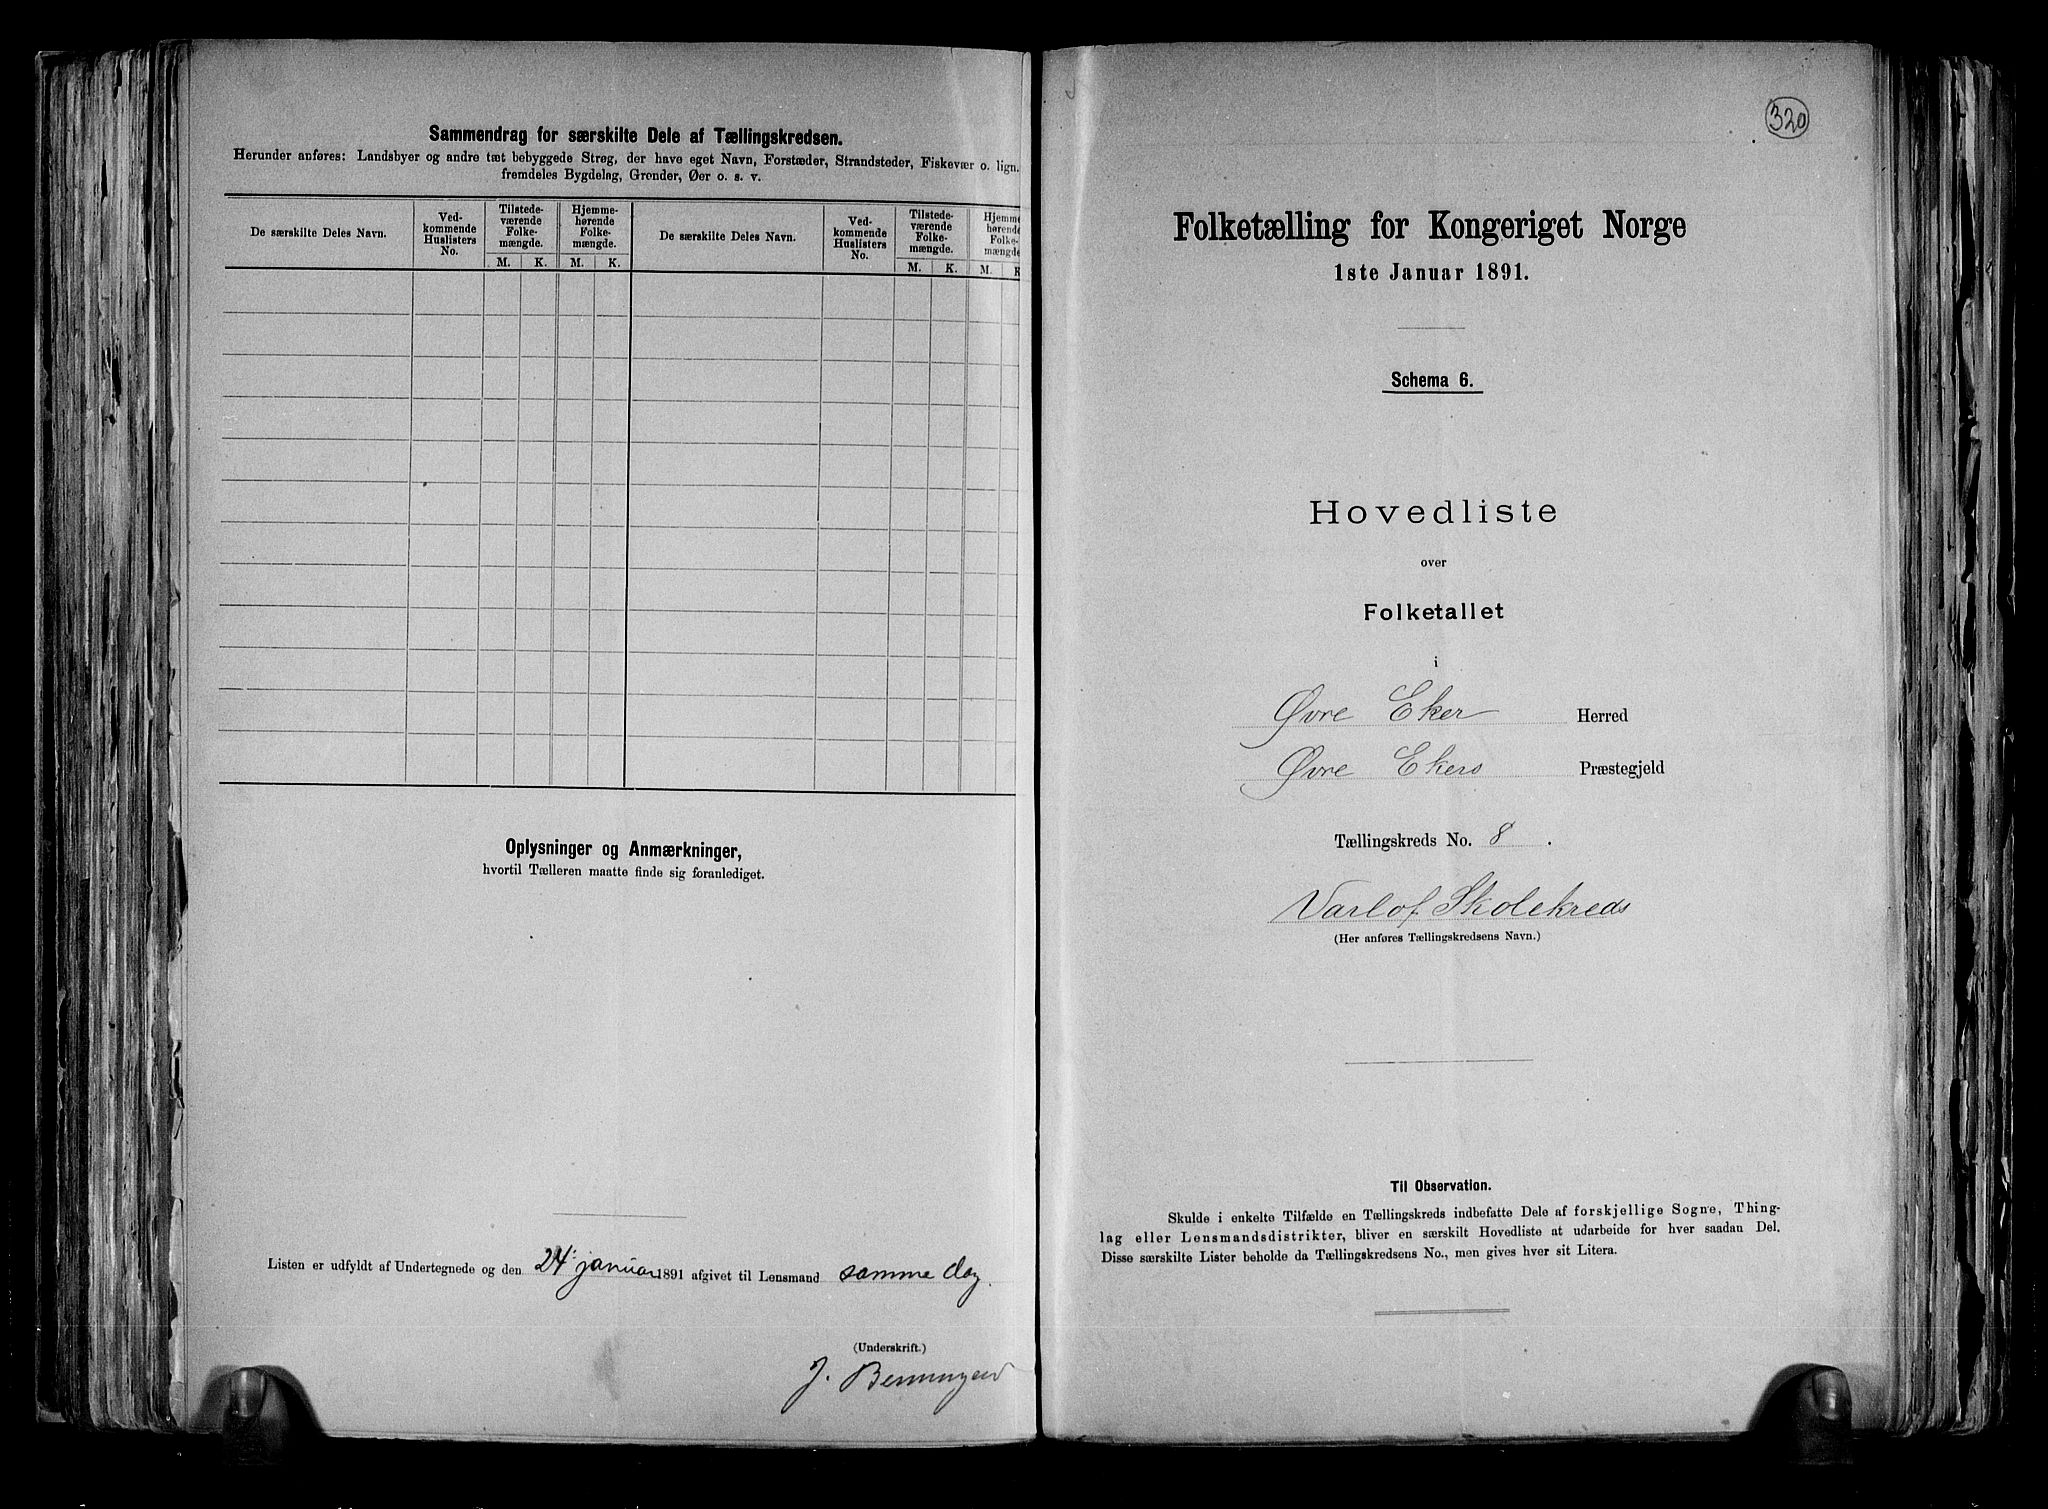 Sammendrag for særskilte Dele af Tællingskredsen.
Herunder anføres: Landsbyer og andre tæt bebyggede Strøg, der have eget Navn, Forstæder, Strandsteder, Fiskevær o. lign.
fremdeles Bygdelag, Grender, Øer o. s. v.
De særskilte Deles Navn.
Ved-
kommende
Huslisters
No.
Tilstede-
værende
Folke-
mængde.
Hjemme-
hørende
Folke-
mængde.
M. K. M. K.
De særskilte Deles Navn.
Ved-
kommende
Huslisters
No.
Tilstede-
værende
Folke-
mængde.
Hjemme
hørende
Folke-
mængde
M. K. M. K
Oplysninger og Anmærkninger,
hvortil Tælleren maatte finde sig foranlediget.
Listen er udfyldt af Undertegnede og den 24. januar 1891 afgivet til Lensmand samme dag.
(Underskrift.)
J.
320
Folketælling for Kongeriget Norge
1ste Januar 1891.
Schema 6.
Hovedliste
over
Folketallet
i
Øvre Eker Herred
Øvre Ekers Præstegjeld
Tællingskreds No. 8.
Varlof Skolekreds
(Her anføres Tællingskredsens Navn.)
Til Observation.
Skulde i enkelte Tilfælde en Tællingskreds indbefatte Dele af forskjellige Sogne, Thing-
lag eller Lensmandsdistrikter, bliver en særskilt Hovedliste at udarbeide for hver saadan Del.
Disse særskilte Lister beholde da Tællingskredsens No., men gives hver sit Litera.